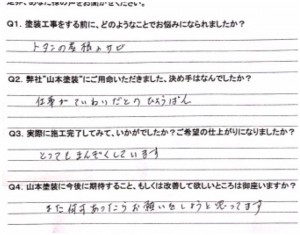 Q1. 塗装工事をする前に、どのようなことでお悩みになられましたか？
トタンの屋根のサビ
Q2. 弊社"山本塗装"にご用命いただきました、決め手はなんでしたか？
仕事がていねいだとのひょうばん
Q3. 実際に施工完了してみて、いかがでしたか？ご希望の仕上がりになりましたか？
とってもまんぞくしています
Q4. 山本塗装に今後に期待すること、もしくは改善して欲しいところは御座いますか？
また何かあったらお願いしようと思ってます